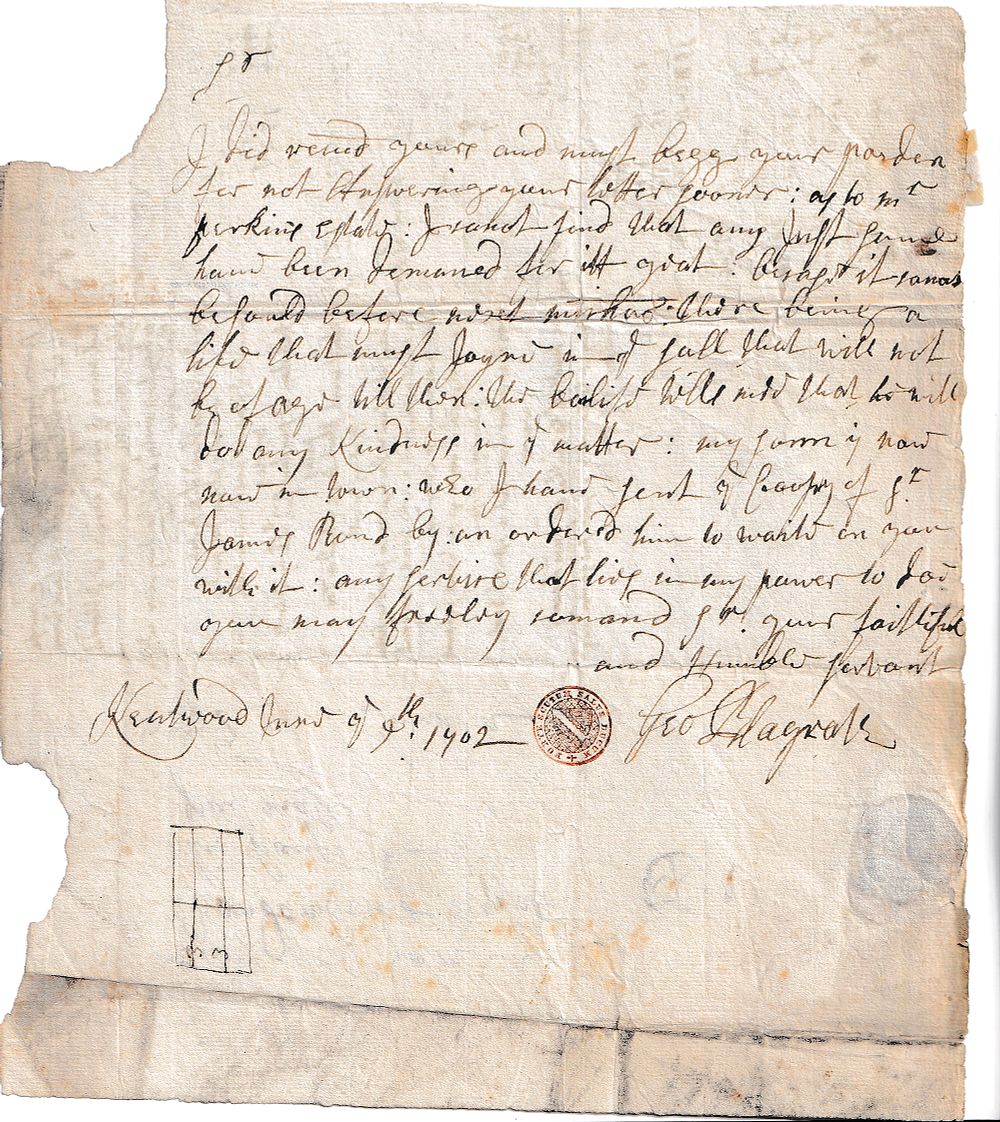 Sr
I did reced yours and must begg your pardon
for not Answering your letter sooner: as to mr
perkins Estate: I canot find that any Just
have been demaned for itt yeat: besaps it canot
be sould before next there being a
life that must Joyne in ye sall that will not
be of age till then: the bailife tells mee that he will
doo any Kindness in ye matter: my sonn is now
now in town: who I have sent ye Coopy of Sr
James Rand by: an ordered him to waite on you
with it: any servise that lies in my power to doe
you may freeley comand Sr. your faithful
and Humble servant
Kentwood June ye 9th. 1702
Geo Blagrave
FORTE SCUTUM SALUS DUCUM
3 3